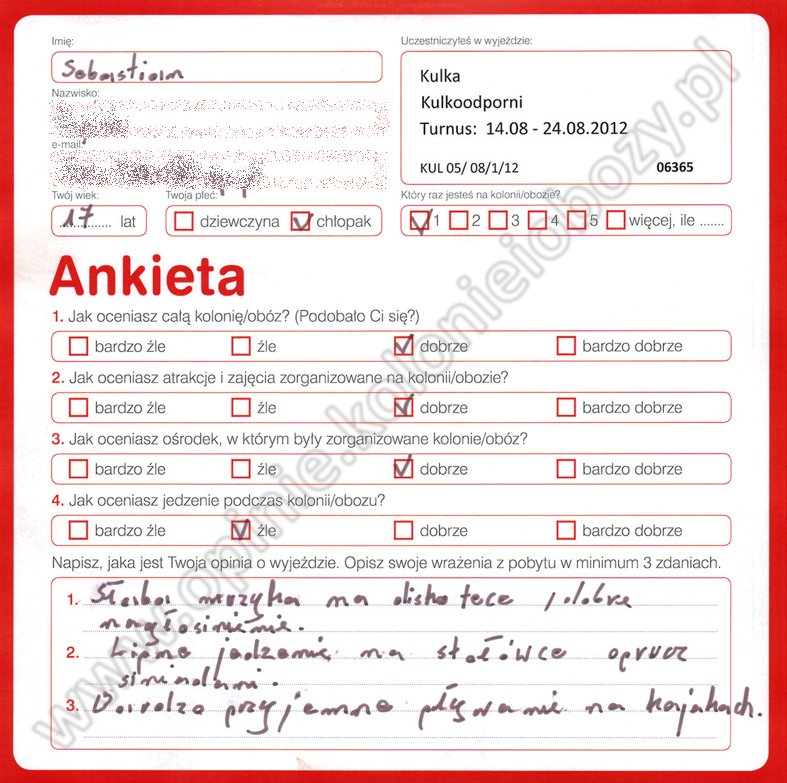 Imię:
Sebastian
Nazwisko:
e-mail:
Twój wiek:
17 lat
Twoja płeć:
dziewczyna chłopak
Uczestniczyłeś w wyjeździe:
Kulka
Kulkoodporni
Turnus: 14.08 - 24.08.2012
KUL 05/ 08/1/12 06365
Który raz jesteś na kolonii/obozie?
1 2 3 4 5 więcej, ile .......
Ankieta
1. Jak oceniasz całą kolonię/obóz? (Podobało Ci się?)
bardzo źle źle dobrze bardzo dobrze
2. Jak oceniasz atrakcje i zajęcia zorganizowane na kolonii/obozie?
bardzo źle źle dobrze bardzo dobrze
3. Jak oceniasz ośrodek, w którym były zorganizowane kolonie/obóz?
bardzo źle źle dobrze bardzo dobrze
4. Jak oceniasz jedzenie podczas kolonii/obozu?
bardzo źle źle dobrze bardzo dobrze
Napisz, jaka jest Twoja opinia o wyjeździe. Opisz swoje wrażenia z pobytu w minimum 3 zdaniach.
1. Słaba muzyka na diskotece, dobre
nagłosinienie.
2. Lipne jedzenie na stołówce oprucz
sniadani.
3. Bardzo przyjemne pływanie na kajakach.
www.opinie.kolonieiobozy.pl